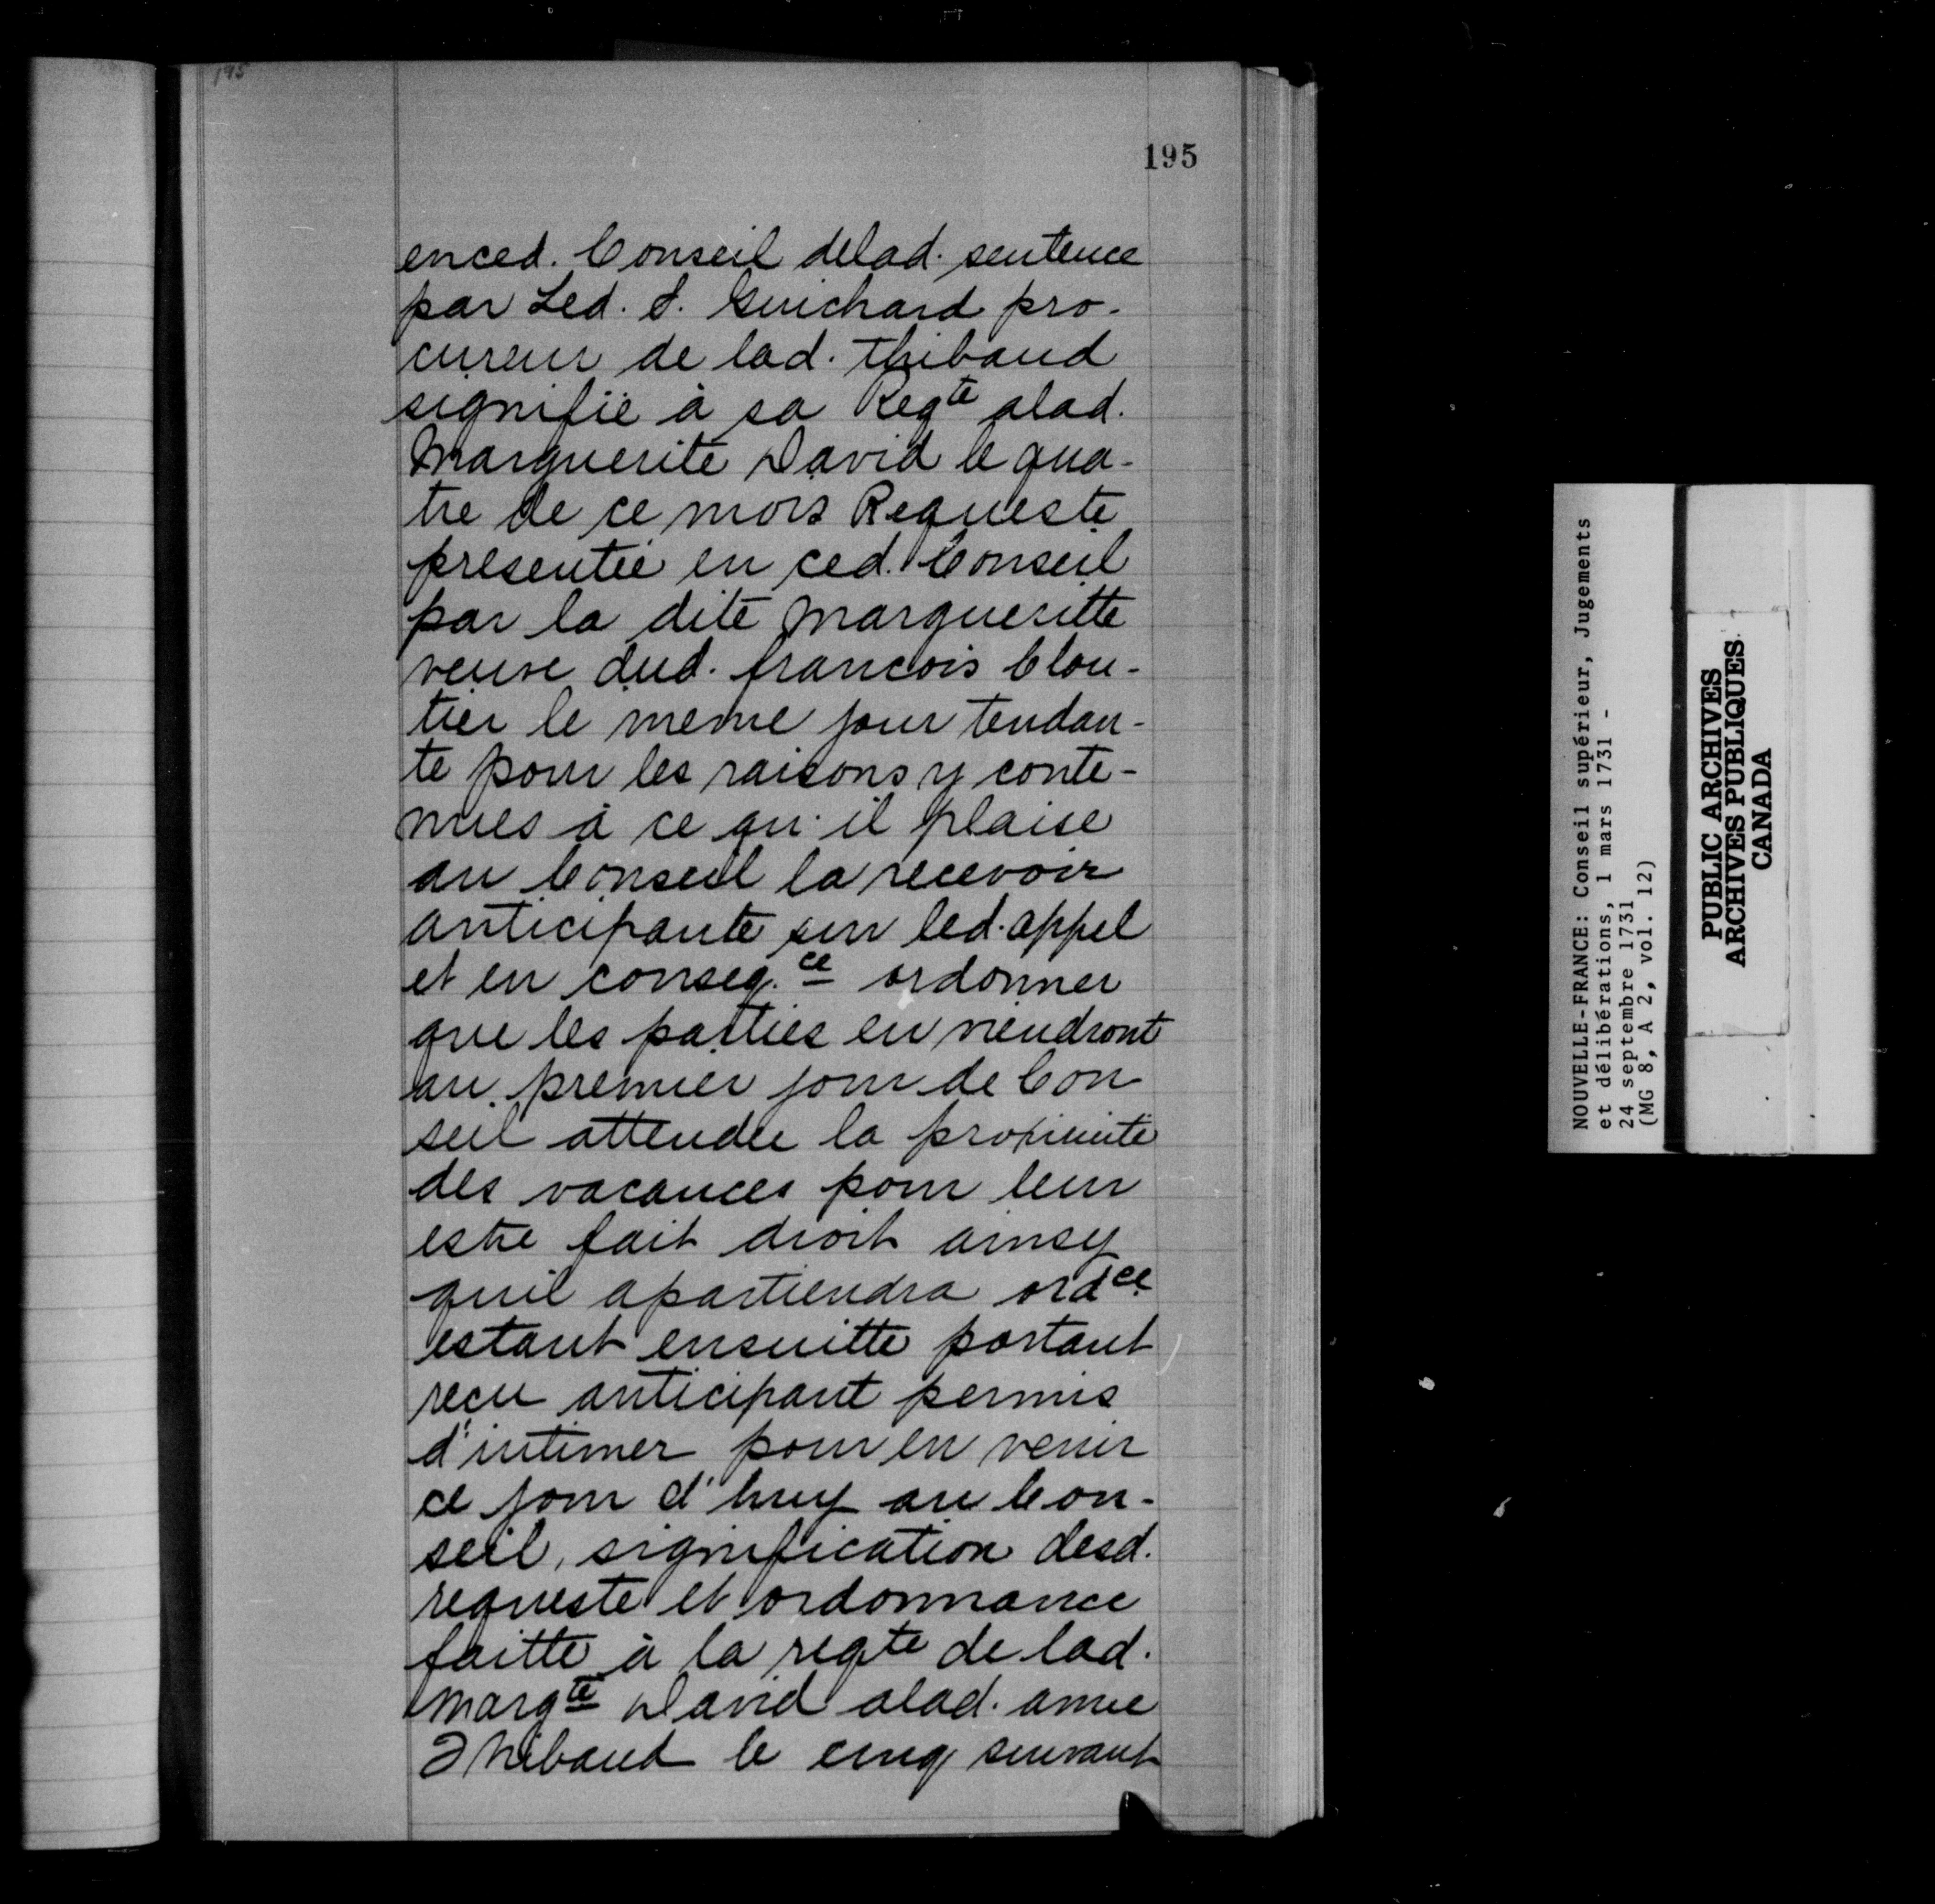 195
195
enced. Conseil delad. sentence
par Led. S. Guichard pro-
cureur de lad. thibaud
signifié à sa Reqte alad.
Marguerite David le qua-
tre de ce mois Requeste
presentée en ced. Conseil
par la dite Margueritte
veuve dud. francois Clou-
tier le meme jour tendan-
te pour les raisons y conte-
nues à ce qu'il plaise
au Conseil la recevoir
anticipante sur led. appel
et en conseq.ce ordonner
que les parties en viendront
au premier jour de Con
seil attendu la proximité
des vacances pour leur
estre fait droit ainsy
quil apartiendra ordce
estant ensuitte portant
recu anticipant permis
d'intimer pour en venir
ce jour d'huy au Con-
seil, signification desd.
requeste et ordonnance
faitte à la reqte de lad.
Margte David alad. anne
Thibaud le cinq suivant
NOUVELLE-FRANCE: Conseil supérieur, Jugements
et délibérations, 1 mars 1731 -
24 septembre 1731
(MG 8, A 2, vol. 12)
PUBLIC ARCHIVES
ARCHIVES PUBLIQUES
CANADA